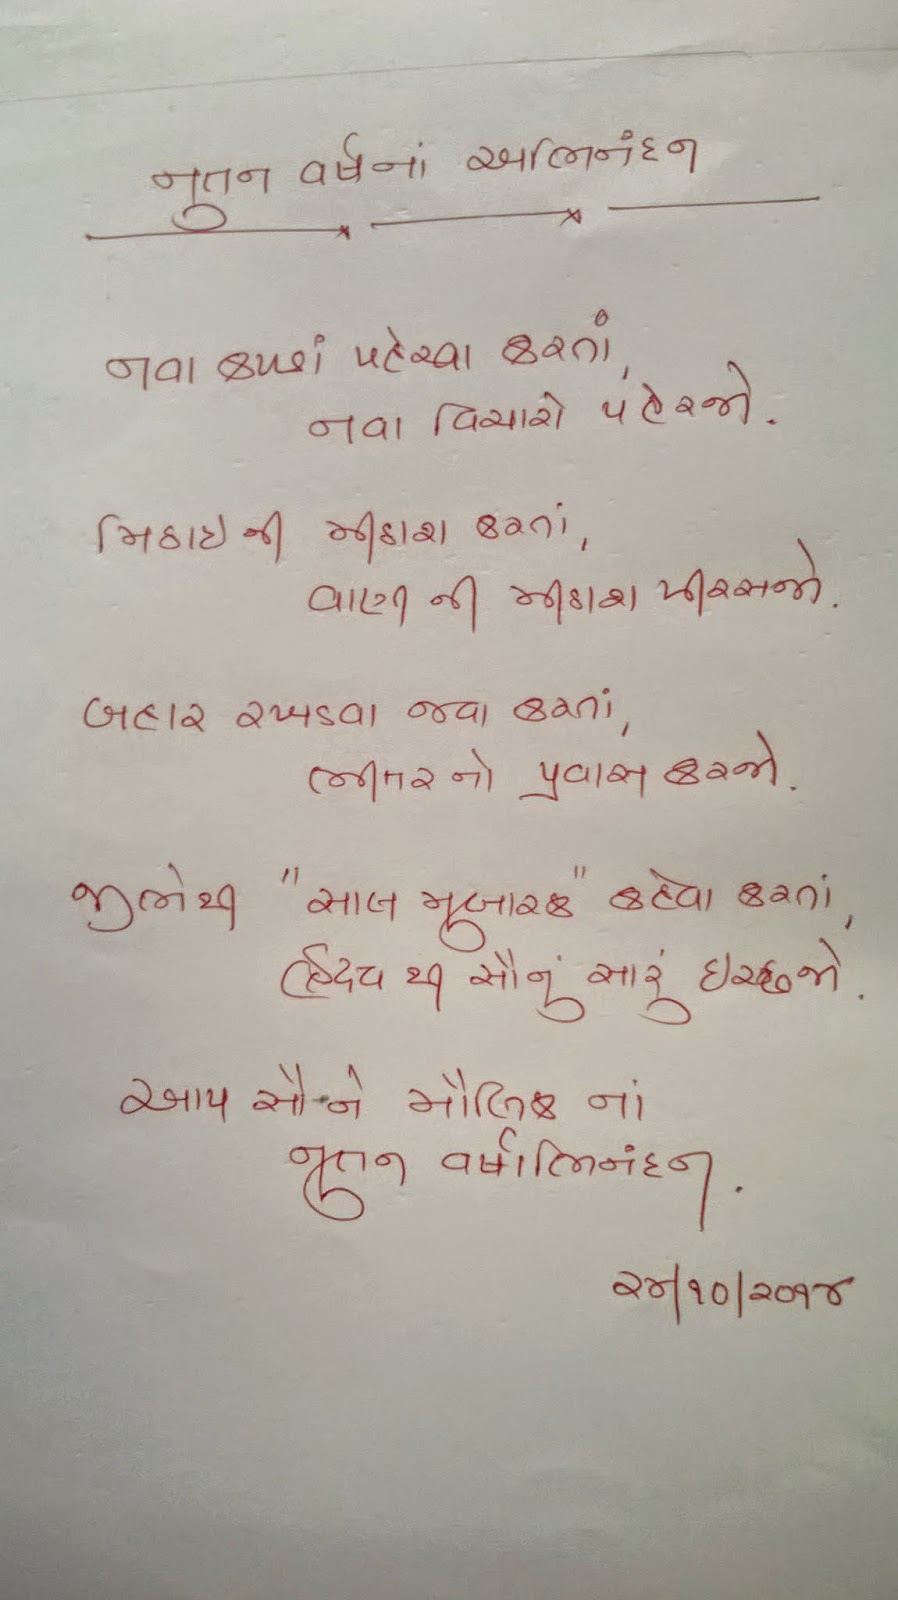 નુતન વર્ષનાં અભિનંદન
નવા કપડાં પહેરવા કરતાં,
નવા વિચારો પહેરજો.
મિઠાઇ ની મીઠાશ કરતાં,
વાણી ની મીઠાશ પીરસજો.
બહાર રખડવા જવા કરતાં,
ભીતર નો પ્રવાસ કરજો.
જીભેથી "સાલ મુબારક" કહેવા કરતાં,
હ્રિદય થી સૌનું સારું ઇચ્છજો.
આપ સૌ ને મૌલિક નાં
નુતન વર્ષાભિનંદન.
૨૪/૧૦/૨૦૧૪